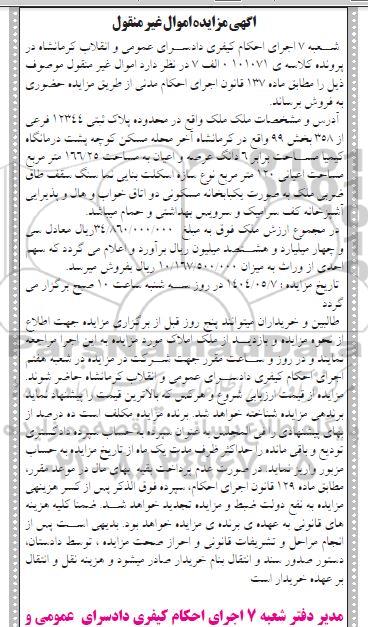 آگهی مزایده اموال غیر منقول
شـــعبه ۷ اجرای احکام کیفری دادســرای عمومی و انقلاب کرمانشاه در
پرونده کلاسه ی ۱۰۱۰۷۱ • الف ۷ در نظر دارد اموال غیر منقول موصوف
ذیل را مطابق ماده ۱۳۷ قانون اجرای احکام مدنی از طریق مزایده حضوری
به فروش برساند.
آدرس و مشخصات ملک ملک واقع در محدوده پلاک ثبتی ۱۲۳۴۴ فرعی
از ۳۵۸ بخش ۹۹ واقع در کرمانشاه آخر محله مسکن کوچه پشت درمانگاه
کیمیا مســاحت برابر ۶ دانگ عرصه و اعیان به مساحت ۱۶۶/۲۵ متر مربع
مساحت اعیانی ۱۲۰ متر مربع نوع سازه اسکلت بنایی نما سنگ سقف طاق
ضربی ملک به صورت یکبابخانه مسکونی دو اتاق خواب و هال و پذیرایی
آشپزخانه کف سرامیک و سرویس بهداشتی و حمام میباشد.
در مجموع ارزش ملک فوق به مبلغ ۳۴/۸۶۰/۰۰۰/۰۰۰ ریال معادل سی
و چهار میلیارد و هشــتصد میلیون ریال برآورد و اعلام می گردد که سهم
احدی از وراث به میزان ۱۰/۱۶۷/۵۰۰/۰۰۰ ریال بفروش میرسد.
تاریخ مزایده : ۱۴۰۴/۰۵/۷ در روز ســه شنبه ساعت ۱۰ صبح برگزار می
گردد
طالبین و خریداران میتوانند پنج روز قبل از برگزاری مزایده جهت اطلاع
از نحوه مزایده و بازدیــد از ملک املاک مورد مزایده به این اجرا مراجعه
نمایند و در روز و ســاعت مقرر جهت شــرکت در مزایده در شعبه هفتم
اجرای احکام کیفری دادسـرای عمومی و انقلاب کرمانشاه حاضر شوند.
مزایده از قیمت ارزیابی شروع و هرکس که بالاترین قیمت را پیشنهاد نماید
برنده‌ی مزایده شناخته خواهد شد. برنده مزایده مکلف است ده درصد از
بهای پیشنهادی را فی المجلس به عنوان سپرده به حساب سپرده دادگستری
تودیع و باقی مانده را حداکثر ظرف مدت یک ماه از تاریخ مزایده به حساب
مزبور واریز نماید. در صورت عدم پرداخت بقیه بهای مال در موعد مقرر،
مطابق ماده ۱۲۹ قانون اجرای احکام، سپرده فوق الذکر پس از کسر هزینه‎ی
مزایده به نفع دولت ضبط و مزایده تجدید خواهد شــد. ضمنا کلیه هزینه
های قانونی به عهده ی برنده ی مزایده خواهد بود. بدیهی اســت پس از
انجام مراحل و تشریفات قانونی و احراز صحت مزایده ، توسط دادستان،
دستور صدور سند و انتقال بنام خریدار صادر میشود و هزینه نقل و انتقال
بر عهده خریدار است
مدیر دفتر شعبه ۷ اجرای احکام کیفری دادسرای عمومی و